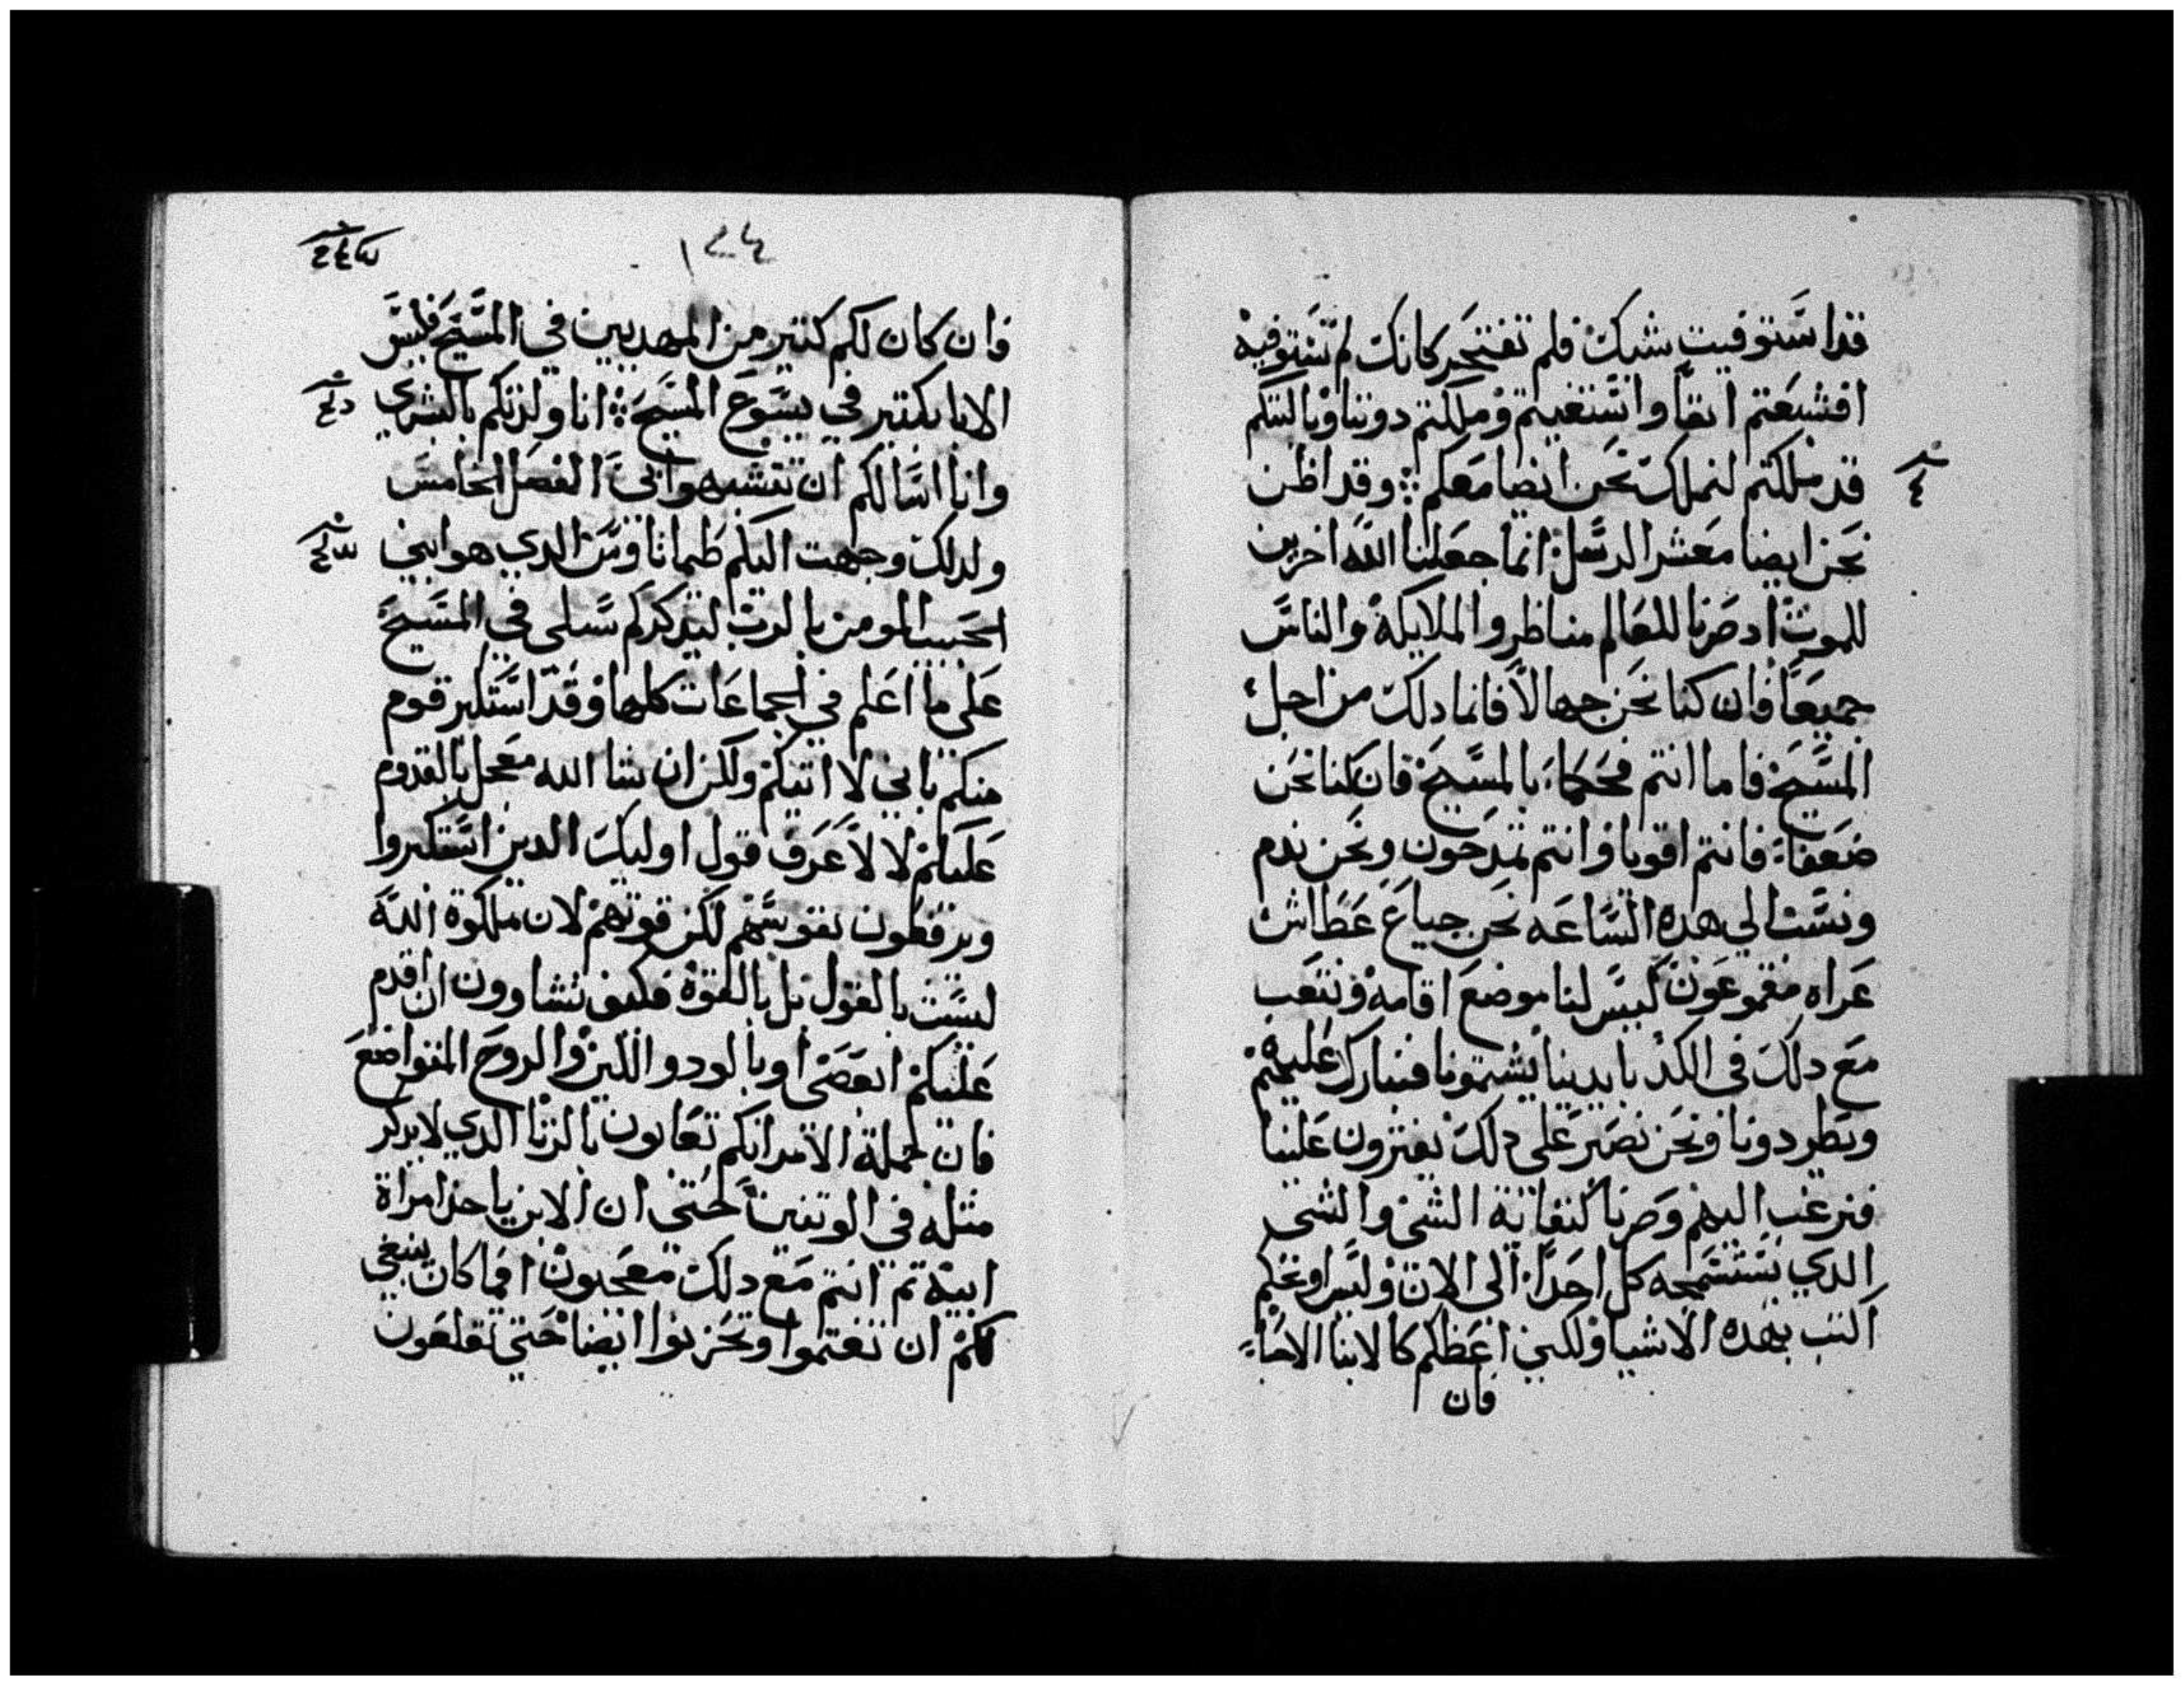 قد استوفيت شيك فلم تفتخر كانك لم تستوفيه
افشبعتم انفا واستغنيتم وملكتم دوننا وياليتكم
قد ملكتم لنملك نحن ايضا معكم وقد اظن
نحن ايضا معشر الرسل انما جعلنا الله اخرين
للموت اد صرنا للعالم مناظر والملايكة والناس
جميعا فان كنا نحن جهالا فانما دلك من اجل
المسيح فاما انتم فحكماء بالمسيح فان كنا نحن
ضعفاء فانتم اقويا وانتم تمدحون ونحن ندم
ونست الي هده الساعه نحن جياع عطاش
عراه مقموعون ليس لنا موضع اقامه ونتعب
مع دلك في الكد بايدينا يشتمونا فنبارك عليهم
ويطردونا ونحن نصبر علي دلك يفترون علينا
فنرغب اليهم وصرنا كنفاية الشي والشي
الدي يستسمجه كل احدا الي الان وليس اوبخكم
اكتب بهده الاشيا ولكني اعظكم كالابنا الاحباء
فان
١٢٤
فان كان لكم كتير من المهدبين في المسيح فليس
الابا بكتير في يسوع المسيح انا ولدتكم بالبشري
وانا اسالكم ان تتشبهوا بي الفصل الخامس
ولدلك وجهت اليكم طيماتاوس الدي هو ابني
الحبيب المومن بالرب ليدكركم سبلي في المسيح
علي ما اعلم في الجماعات كلها وقد استكبر قوم
منكم باني لا اتيكم ولكن ان شا الله معجل بالقدوم
عليكم لا لاعرف قول اوليك الدين استكبروا
ويرفعون نفوسهم لكن قوتهم لان ملكوة الله
ليست بالقول بل بالقوة فكيف تشاوون ان اقدم
عليكم ابعصى او بالود واللين والروح المتواضع
فان جملة الامر انكم تعابون بالزنا الدي لا يدكر
متله في الوتنين حتي ان الابن ياخد امراة
ابيه تم انتم مع دلك معجبون افما كان ينبغي
لكم ان تغتموا وتحزنوا ايضا حتي تقلعون